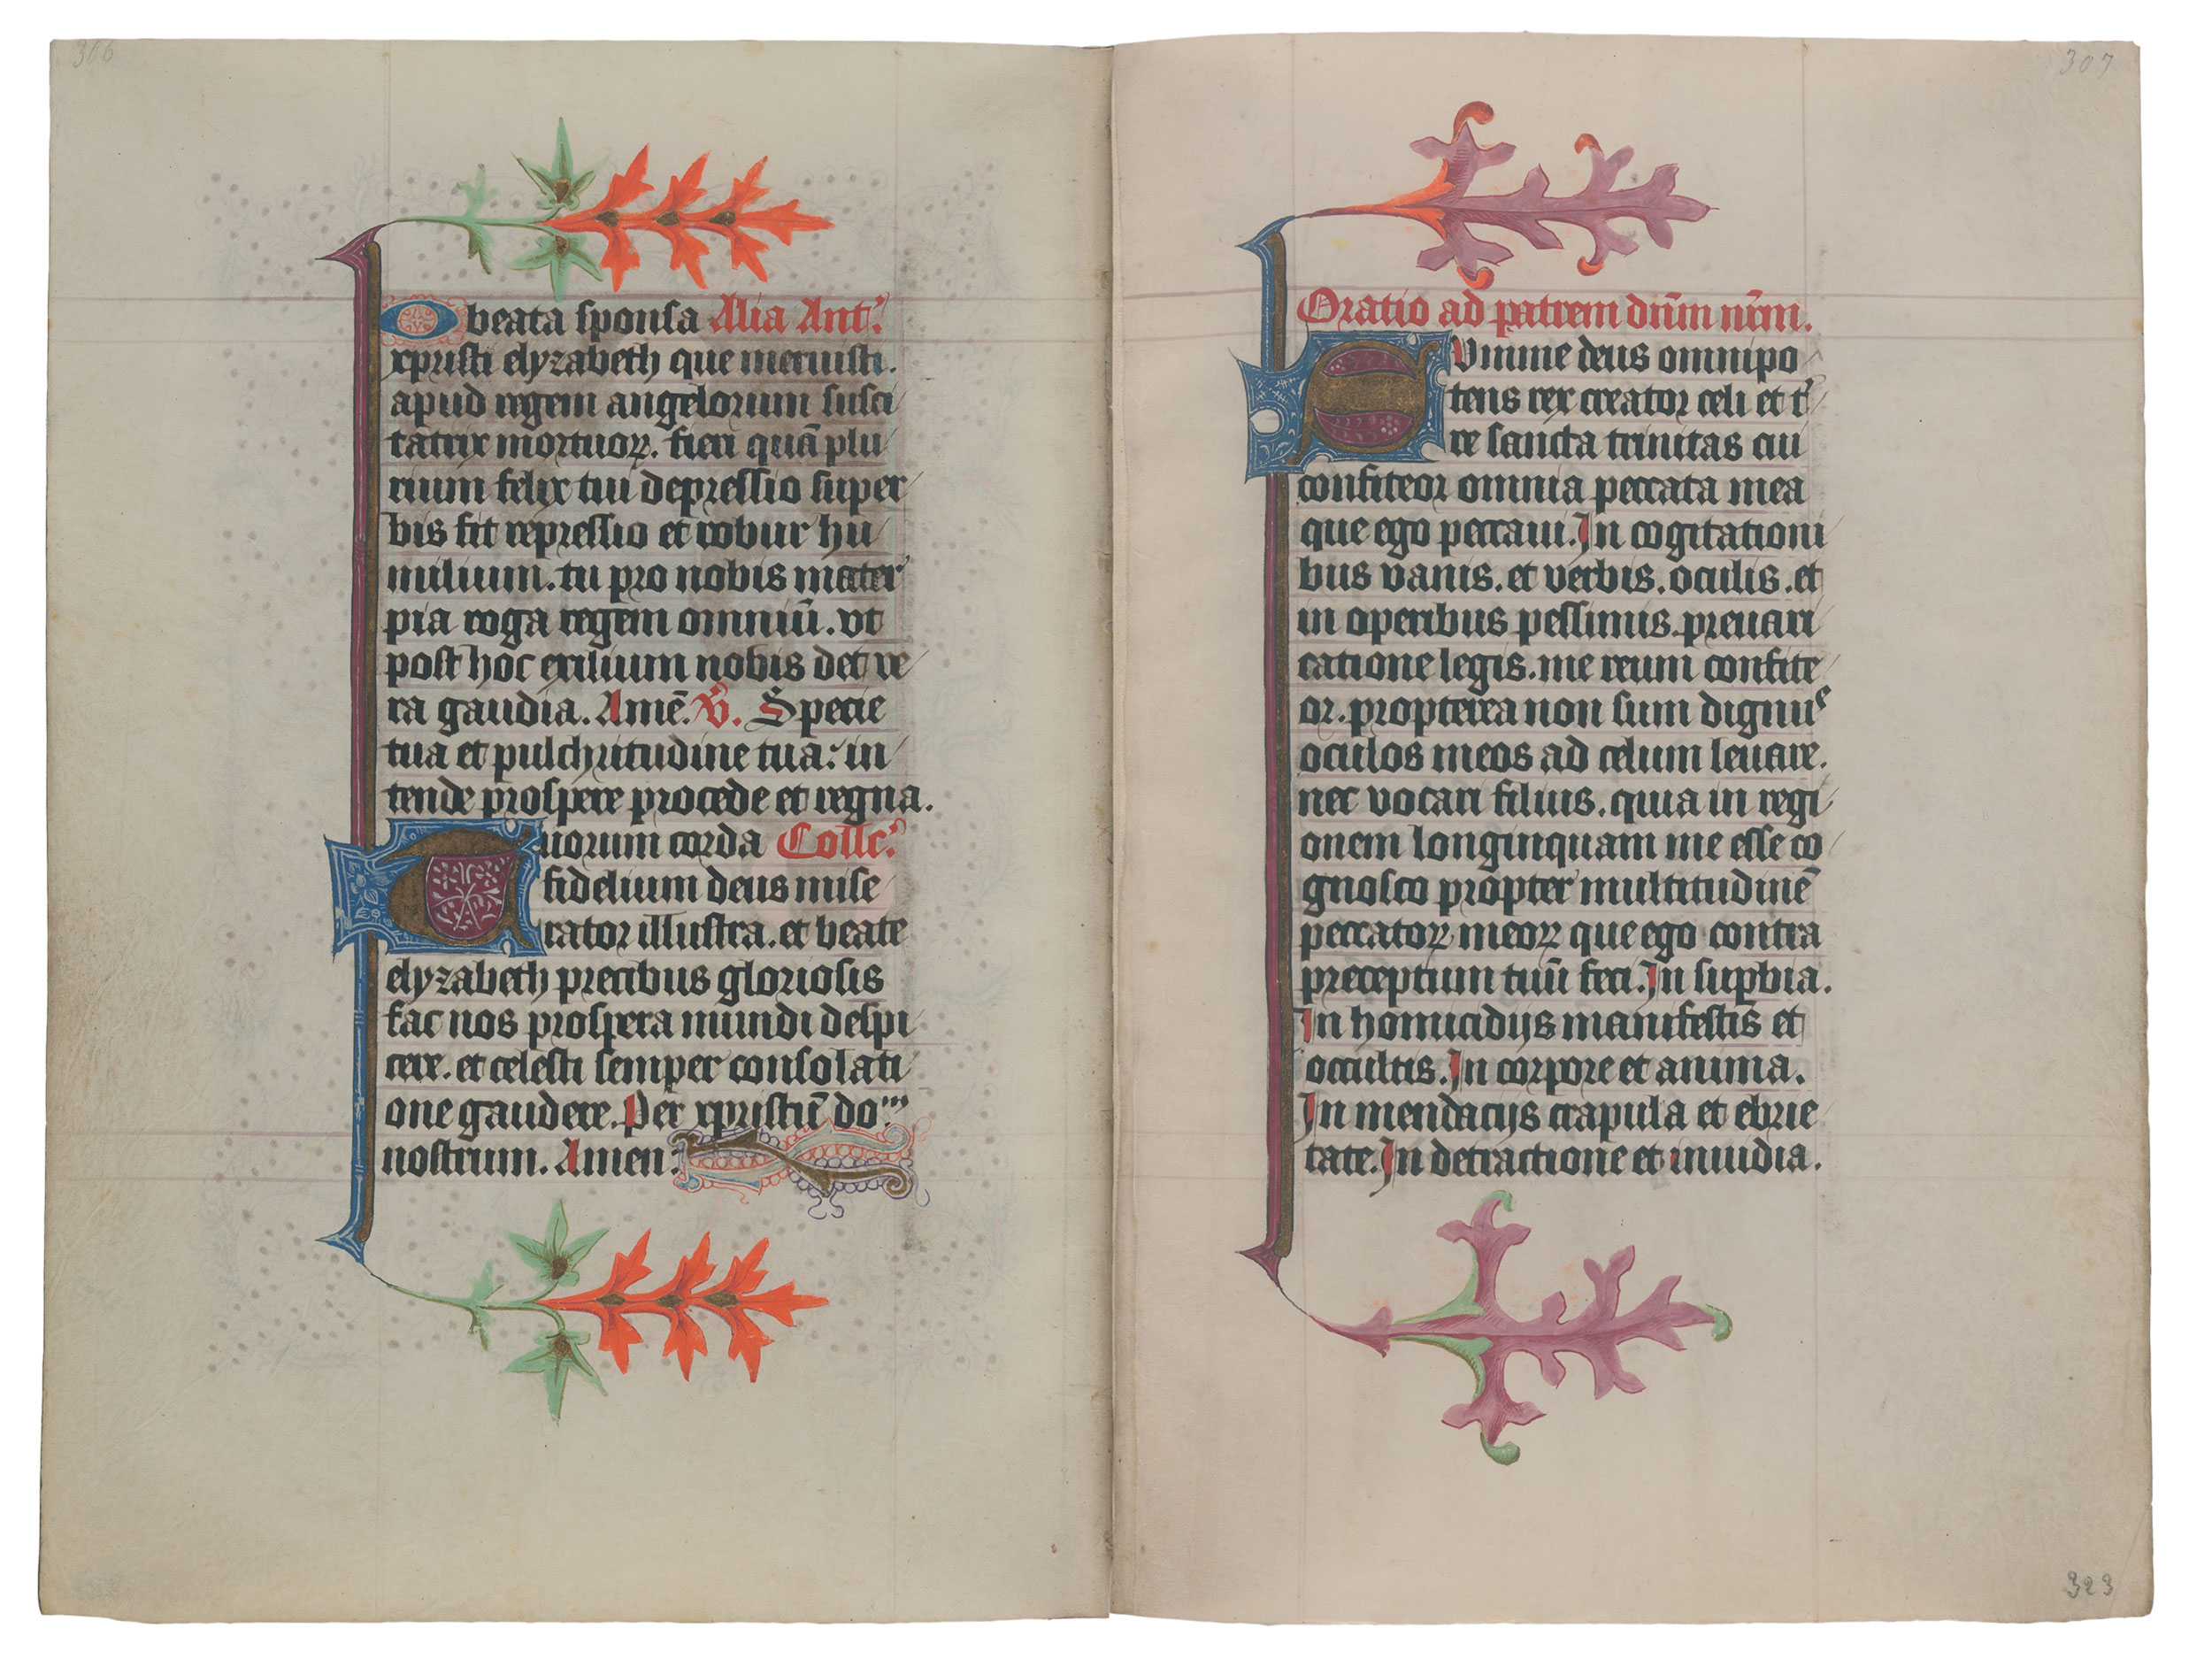 306
O beata sponsa Alia Ant'.
xpristi elyzabeth que meruisti.
apud regem angelorum susci
tatrix mortuoꝝ. fieri quā plu
rium felix tui depressio super
bis fit repressio et robur hu
milium. tu pro nobis mater
pia roga regem omniū. vt
post hoc exilium nobis det ve
ra gaudia. Amē. V. Specie
tua et pulchritudine tua: in
tende prospere procede et regna.
Tuorum corda Collc'.
fidelium deus mise
rator illustra. et beate
elyzabeth precibus gloriosis
fac nos prospera mundi despi
cere. et celesti semper consolati
one gaudere. Per xpristū do'''
nostrum. Amen:
307
Oratio ad patrem dn̄m nr̄m.
SVmme deus omnipo
tens rex creator celi et t'
re sancta trinitas cui
confiteor omnia peccata mea
que ego peccaui. In cogitationi
bus vanis. et verbis. oculis. et
in operibus pessimis. preuari
catione legis. me reum confite
or. propterea non sum dignuꝰ
oculos meos ad celum leuare.
nec vocari filius. quia in regi
onem longinquam me esse co
gnosco propter multitudinē
peccatoꝝ meoꝝ que ego contra
preceptum tuū feci. In suꝑbia.
In homicidijs manifestis et
occultis. In corpore et anima.
In mendacijs crapula et ebrie
tate. In detractione et inuidia.
323